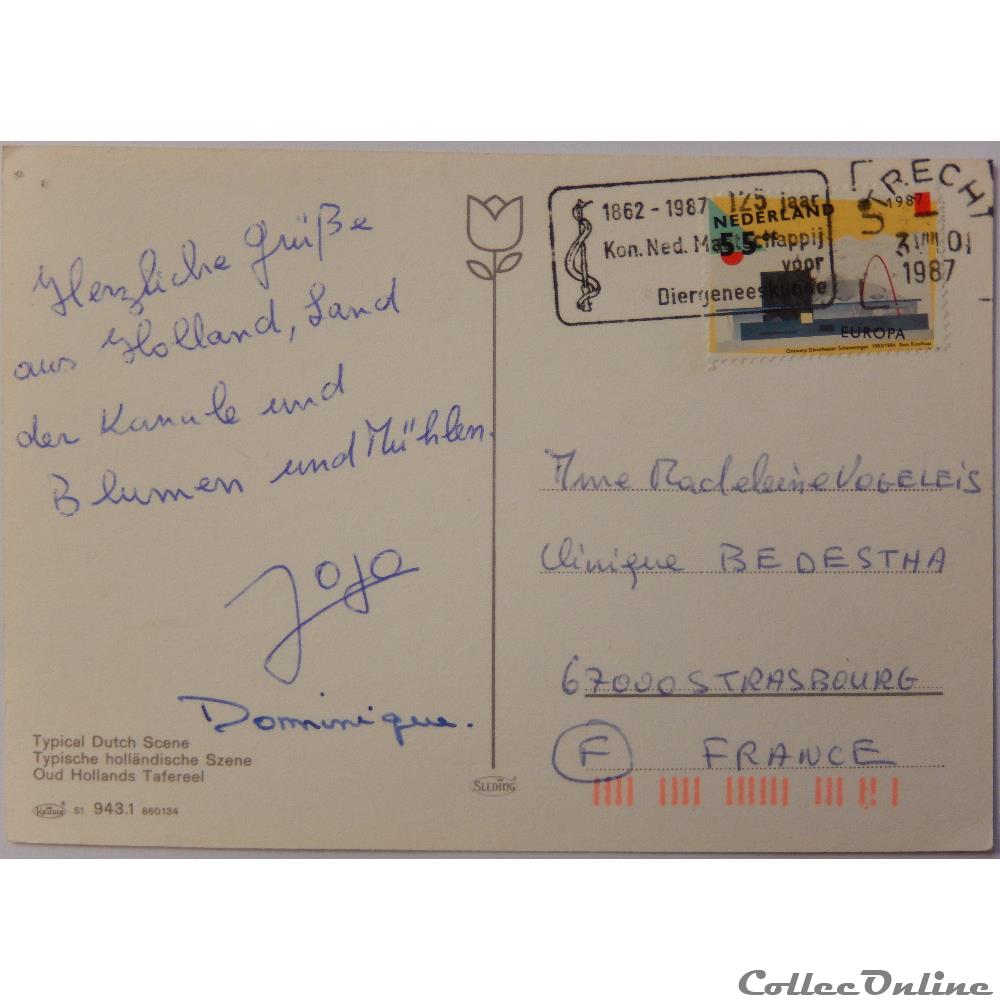 Herzliche Grüße
aus Holland, Land
der Kanale und
Blumen und Mühlen.
Jojo
Dominique.
Typical Dutch Scene
Typische holländische Szene
Oud Hollands Tafereel
KRÜGER 51. 943.1 860134
SLEDING
1862 - 1987 125 jaar
Kon. Ned. Maatschappij
voor
Diergeneeskunde
UTRECHT
1987
NEDERLAND
55 ct
EUROPA
Mme Madeleine VOGELEIS
Clinique BEDESTHA
67000 STRASBOURG
F FRANCE
CollecOnline